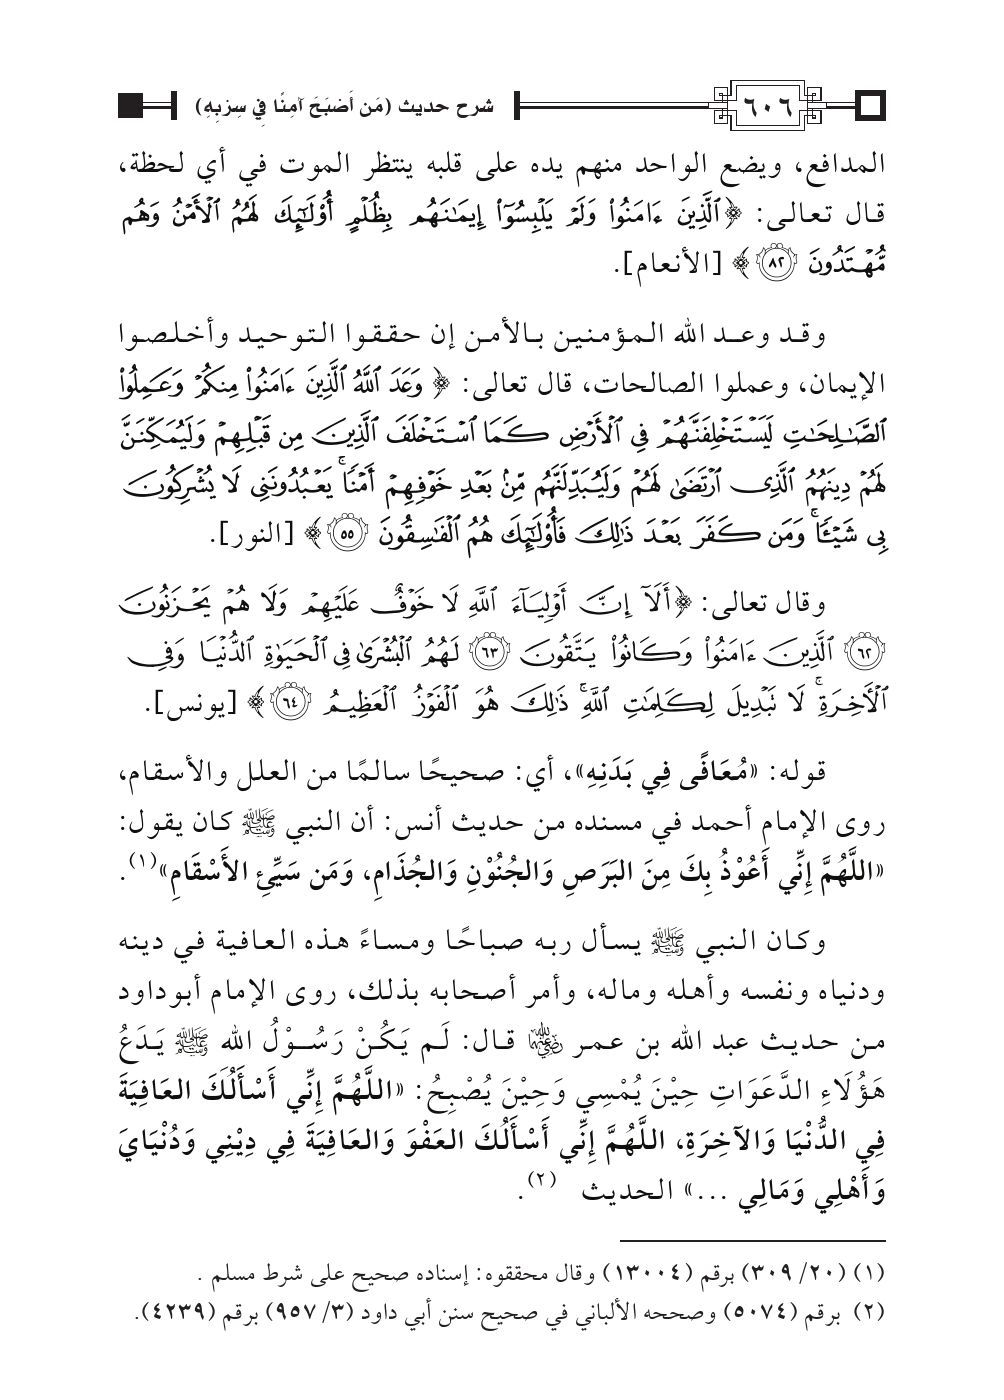 ٦٠٦
شرح حديث (مَن أَصْبَحَ آمِنًا فِي سِرْبِهِ)
المدافع، ويضع الواحد منهم يده على قلبه ينتظر الموت في أي لحظة،
قال تعالى: ﴿ٱلَّذِينَ ءَامَنُوا۟ وَلَمْ يَلْبِسُوٓا۟ إِيمَـٰنَهُم بِظُلْمٍ أُو۟لَـٰٓئِكَ لَهُمُ ٱلْأَمْنُ وَهُم
مُّهْتَدُونَ ٨٢﴾ [الأنعام].
وقد وعد الله المؤمنين بالأمن إن حققوا التوحيد وأخلصوا
الإيمان، وعملوا الصالحات، قال تعالى: ﴿وَعَدَ ٱللَّهُ ٱلَّذِينَ ءَامَنُوا۟ مِنكُمْ وَعَمِلُوا۟
ٱلصَّـٰلِحَـٰتِ لَيَسْتَخْلِفَنَّهُمْ فِى ٱلْأَرْضِ كَمَا ٱسْتَخْلَفَ ٱلَّذِينَ مِن قَبْلِهِمْ وَلَيُمَكِّنَنَّ
لَهُمْ دِينَهُمُ ٱلَّذِى ٱرْتَضَىٰ لَهُمْ وَلَيُبَدِّلَنَّهُم مِّنۢ بَعْدِ خَوْفِهِمْ أَمْنًا ۚ يَعْبُدُونَنِى لَا يُشْرِكُونَ
بِى شَيْـًٔا ۚ وَمَن كَفَرَ بَعْدَ ذَٰلِكَ فَأُو۟لَـٰٓئِكَ هُمُ ٱلْفَـٰسِقُونَ ٥٥﴾ [النور].
وقال تعالى: ﴿أَلَآ إِنَّ أَوْلِيَآءَ ٱللَّهِ لَا خَوْفٌ عَلَيْهِمْ وَلَا هُمْ يَحْزَنُونَ
٦٢ ٱلَّذِينَ ءَامَنُوا۟ وَكَانُوا۟ يَتَّقُونَ ٦٣ لَهُمُ ٱلْبُشْرَىٰ فِى ٱلْحَيَوٰةِ ٱلدُّنْيَا وَفِى
ٱلْـَٔاخِرَةِ ۚ لَا تَبْدِيلَ لِكَلِمَـٰتِ ٱللَّهِ ۚ ذَٰلِكَ هُوَ ٱلْفَوْزُ ٱلْعَظِيمُ ٦٤﴾ [يونس].
قوله: «مُعَافًى فِي بَدَنِهِ»، أي: صحيحًا سالمًا من العلل والأسقام،
روى الإمام أحمد في مسنده من حديث أنس: أن النبي ﷺ كان يقول:
«اللَّهُمَّ إِنِّي أَعُوْذُ بِكَ مِنَ البَرَصِ وَالجُنُوْنِ وَالجُذَامِ، وَمَن سَيِّئِ الأَسْقَامِ»(١).
وكان النبي ﷺ يسأل ربه صباحًا ومساءً هذه العافية في دينه
ودنياه ونفسه وأهله وماله، وأمر أصحابه بذلك، روى الإمام أبوداود
من حديث عبد الله بن عمر رضي الله عنهما قال: لَم يَكُنْ رَسُوْلُ الله ﷺ يَدَعُ
هَؤُلَاءِ الدَّعَوَاتِ حِيْنَ يُمْسِي وَحِيْنَ يُصْبِحُ: «اللَّهُمَّ إِنِّي أَسْأَلُكَ العَافِيَةَ
فِي الدُّنْيَا وَالآخِرَةِ، اللَّهُمَّ إِنِّي أَسْأَلُكَ العَفْوَ وَالعَافِيَةَ فِي دِيْنِي وَدُنْيَايَ
وَأَهْلِي وَمَالِي ...» الحديث (٢).
(١) (٢٠/ ٣٠٩) برقم (١٣٠٠٤) وقال محققوه: إسناده صحيح على شرط مسلم .
(٢) برقم (٥٠٧٤) وصححه الألباني في صحيح سنن أبي داود (٣/ ٩٥٧) برقم (٤٢٣٩).